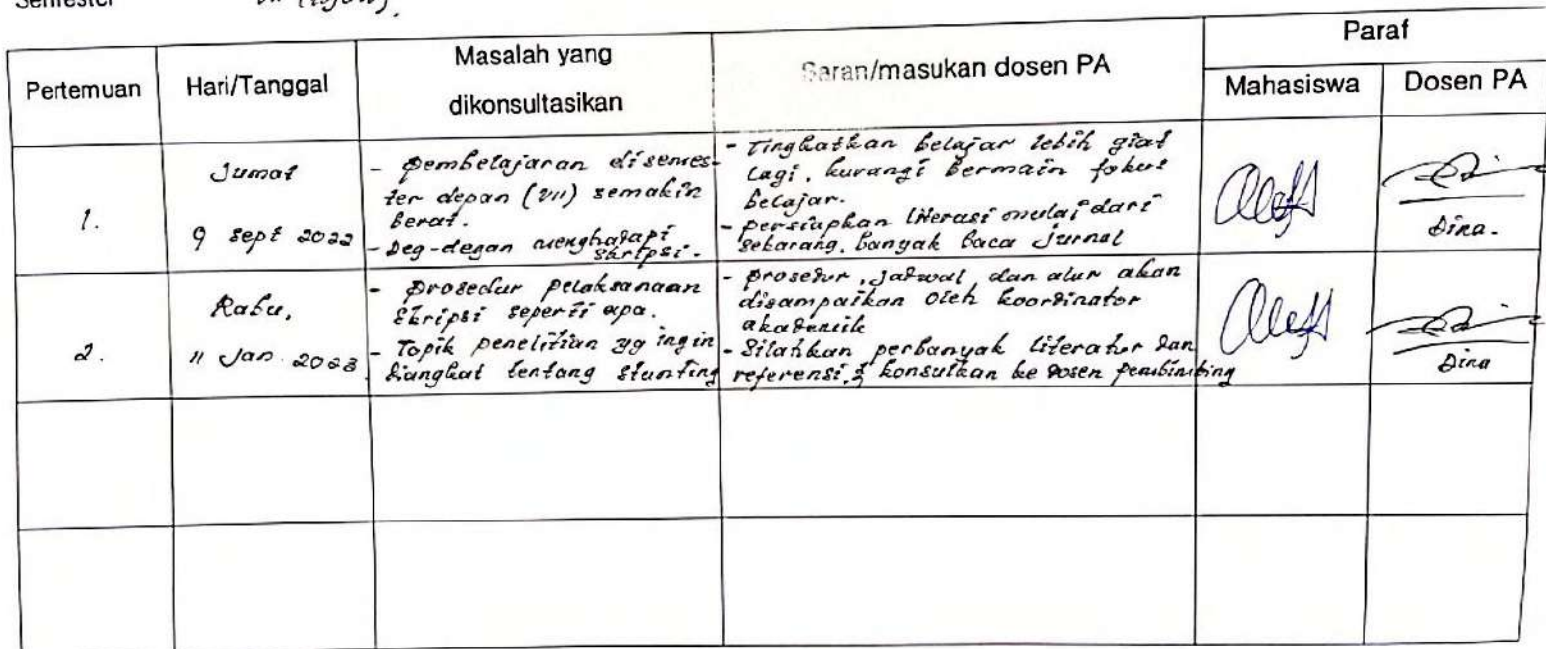 Semester VII (tujuh).
Pertemuan
Hari/Tanggal
Masalah yang
dikonsultasikan
Saran/masukan dosen PA
Paraf
Mahasiswa
Dosen PA
1.
Jumat
9 Sept 2022
- Pembelajaran di semes-
ter depan (VII) semakin
berat.
- Deg-degan menghadapi
skripsi.
- Tingkatkan belajar lebih giat
lagi, kurangi bermain fokus
belajar.
- persiapkan literasi mulai dari
sekarang, banyak baca jurnal
Dina.
2.
Rabu,
11 Jan. 2023
- Prosedur pelaksanaan
skripsi seperti apa.
- Topik penelitian yg ingin
diangkat tentang stunting
- Prosedur, jadwal dan alur akan
disampaikan oleh koordinator
akademik
- Silahkan perbanyak literatur dan
referensi, & konsulkan ke dosen pembimbing
Dina